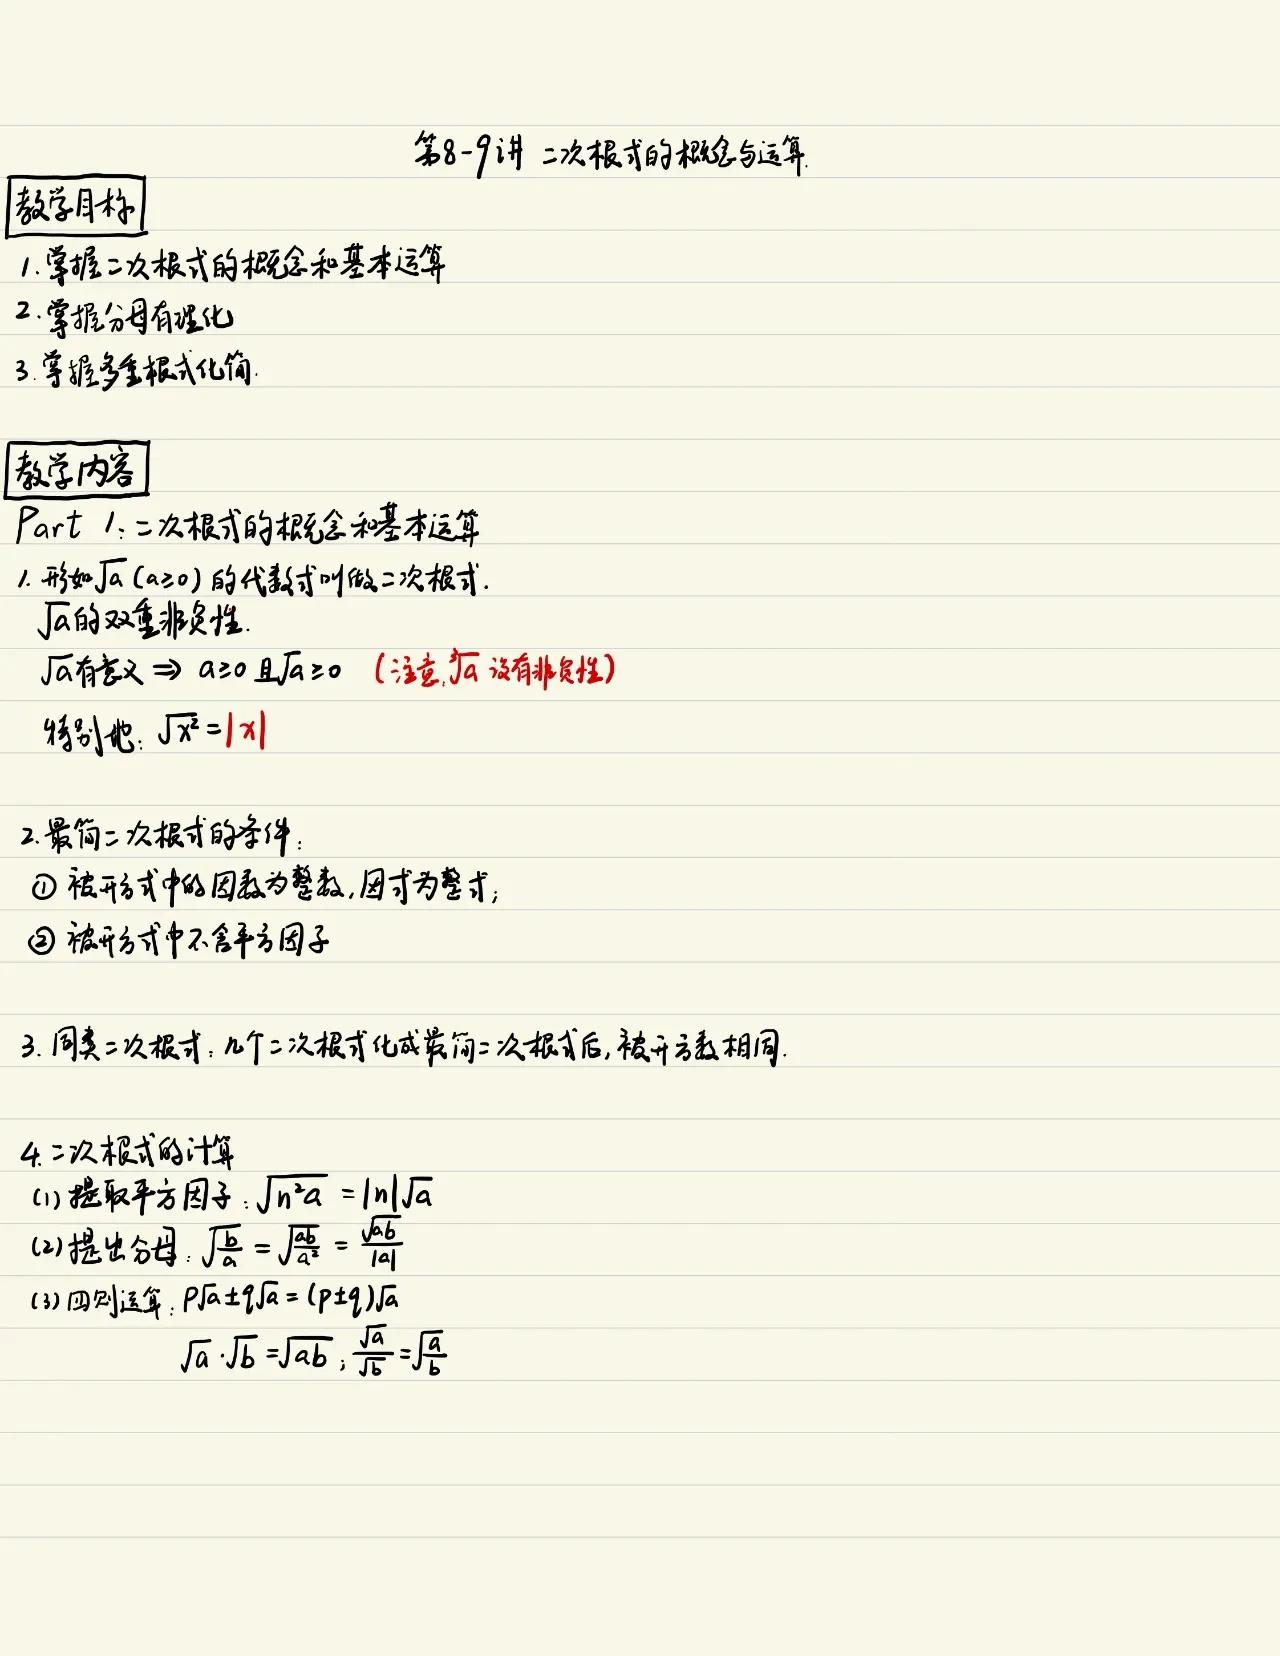 第8-9讲 二次根式的概念与运算.
教学目标
1.掌握二次根式的概念和基本运算
2.掌握分母有理化
3.掌握多重根式化简.
教学内容
Part 1:二次根式的概念和基本运算
1.形如√a(a≥0)的代数式叫做二次根式.
√a的双重非负性.
√a有意义⇒a≥0且√a≥0 (注意,∛a没有非负性)
特别地:√x²=|x|
2.最简二次根式的条件:
① 被开方式中的因数为整数,因式为整式;
② 被开方式中不含平方因子
3.同类二次根式:几个二次根式化成最简二次根式后,被开方数相同.
4.二次根式的计算
(1)提取平方因子:√(n²a)=|n|√a
(2)提出分母:√(b/a)=√(ab/a²)=√(ab)/|a|
(3)四则运算:p√a±q√a=(p±q)√a
√a·√b=√(ab);√a/√b=√(a/b)